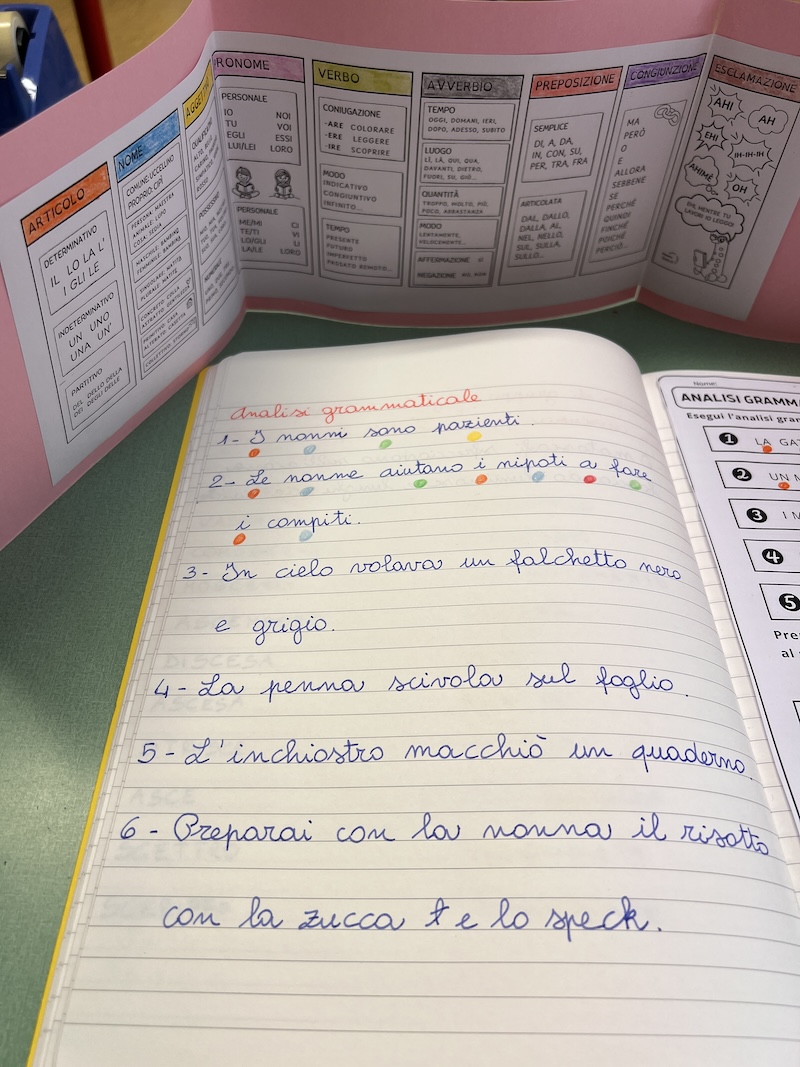 ARTICOLO
DETERMINATIVO
IL LO LA L'
I GLI LE
INDETERMINATIVO
UN UNO
UNA UN'
PARTITIVO
DEL DELLO DELLA
DEI DEGLI DELLE
NOME
COMUNE: UCCELLINO
PROPRIO: CIP
PERSONA: MAESTRA
ANIMALE: LUPO
COSA: SEDIA
RONOME
PERSONALE
IO NOI
TU VOI
EGLI ESSI
LUI/LEI LORO
PERSONALE
ME/MI CI
TE/TI VI
LO/GLI LI
LA/LE LORO
VERBO
CONIUGAZIONE
-ARE COLORARE
-ERE LEGGERE
-IRE SCOPRIRE
MODO
INDICATIVO
CONGIUNTIVO
INFINITO...
TEMPO
PRESENTE
FUTURO
IMPERFETTO
PASSATO REMOTO...
AVVERBIO
TEMPO
OGGI, DOMANI, IERI,
DOPO, ADESSO, SUBITO
LUOGO
LÌ, LÀ, QUI, QUA,
DAVANTI, DIETRO,
FUORI, SU, GIÙ...
QUANTITÀ
TROPPO, MOLTO, PIÙ,
POCO, ABBASTANZA
MODO
LENTAMENTE,
VELOCEMENTE...
AFFERMAZIONE SÌ
NEGAZIONE NO, NON
PREPOSIZIONE
SEMPLICE
DI, A, DA,
IN, CON, SU,
PER, TRA, FRA
ARTICOLATA
DAL, DALLO,
DALLA, AL,
NEL, NELLO,
SUL, SULLA,
SULLO...
CONGIUNZIONE
MA
PERÒ
O
E
ALLORA
SEBBENE
SE
PERCHÉ
QUINDI
FINCHÉ
POICHÉ
PERCIÒ...
ESCLAMAZIONE
AHI
AH
EHI
IH-IH-IH
AHIMÈ
OH
EHI, MENTRE TU
LAVORI IO LEGGO!
Analisi grammaticale
1- I nonni sono pazienti.
2- Le nonne aiutano i nipoti a fare
i compiti.
3- In cielo volava un falchetto nero
e grigio.
4- La penna scivola sul foglio.
5- L'inchiostro macchiò un quaderno.
6- Preparai con la nonna il risotto
con la zucca e lo speck.
Nome:
ANALISI GRAMMA
Esegui l'analisi gra
1 LA GA
2 UN
3 I M
4
5
Pre
al